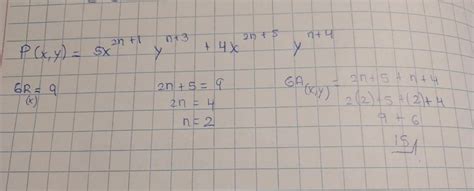 P(x,y) = 5x^{2n+1} y^{n+3} + 4x^{2n+5} y^{n+4}
GR(x) = 9
2n+5 = 9
2n = 4
n = 2
GA(x,y) = 2n+5+n+4
2(2)+5+(2)+4
9 + 6
15